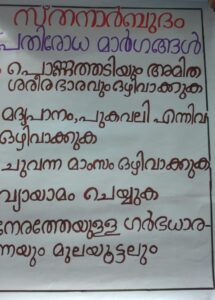 സ്തനാർബുദം
പ്രതിരോധ മാർഗങ്ങൾ
പൊണ്ണത്തടിയും അമിത
ശരീരഭാരവും ഒഴിവാക്കുക
മദ്യപാനം, പുകവലി എന്നിവ
ഒഴിവാക്കുക
ചുവന്ന മാംസം ഒഴിവാക്കുക
വ്യായാമം ചെയ്യുക
നേരത്തേയുള്ള ഗർഭധാര-
ണയും മുലയൂട്ടലും